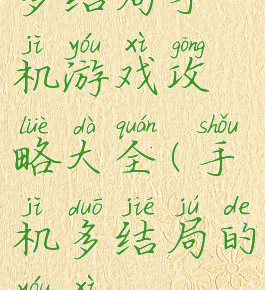 多结局手
jī yóu xì gōng
机游戏攻
lüè dà quán shǒu
略大全(手
jī duō jié jú de
机多结局的
yóu xì